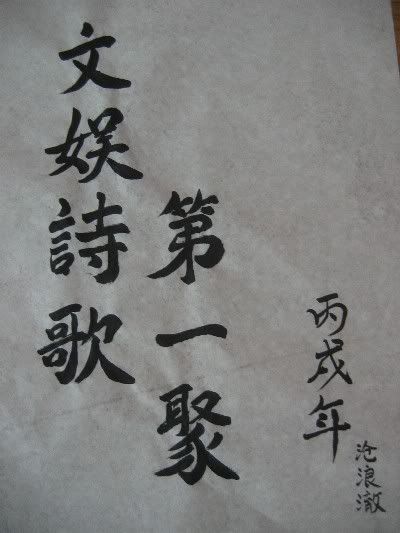 文娱詩歌
第一聚
丙戌年
沧浪澈